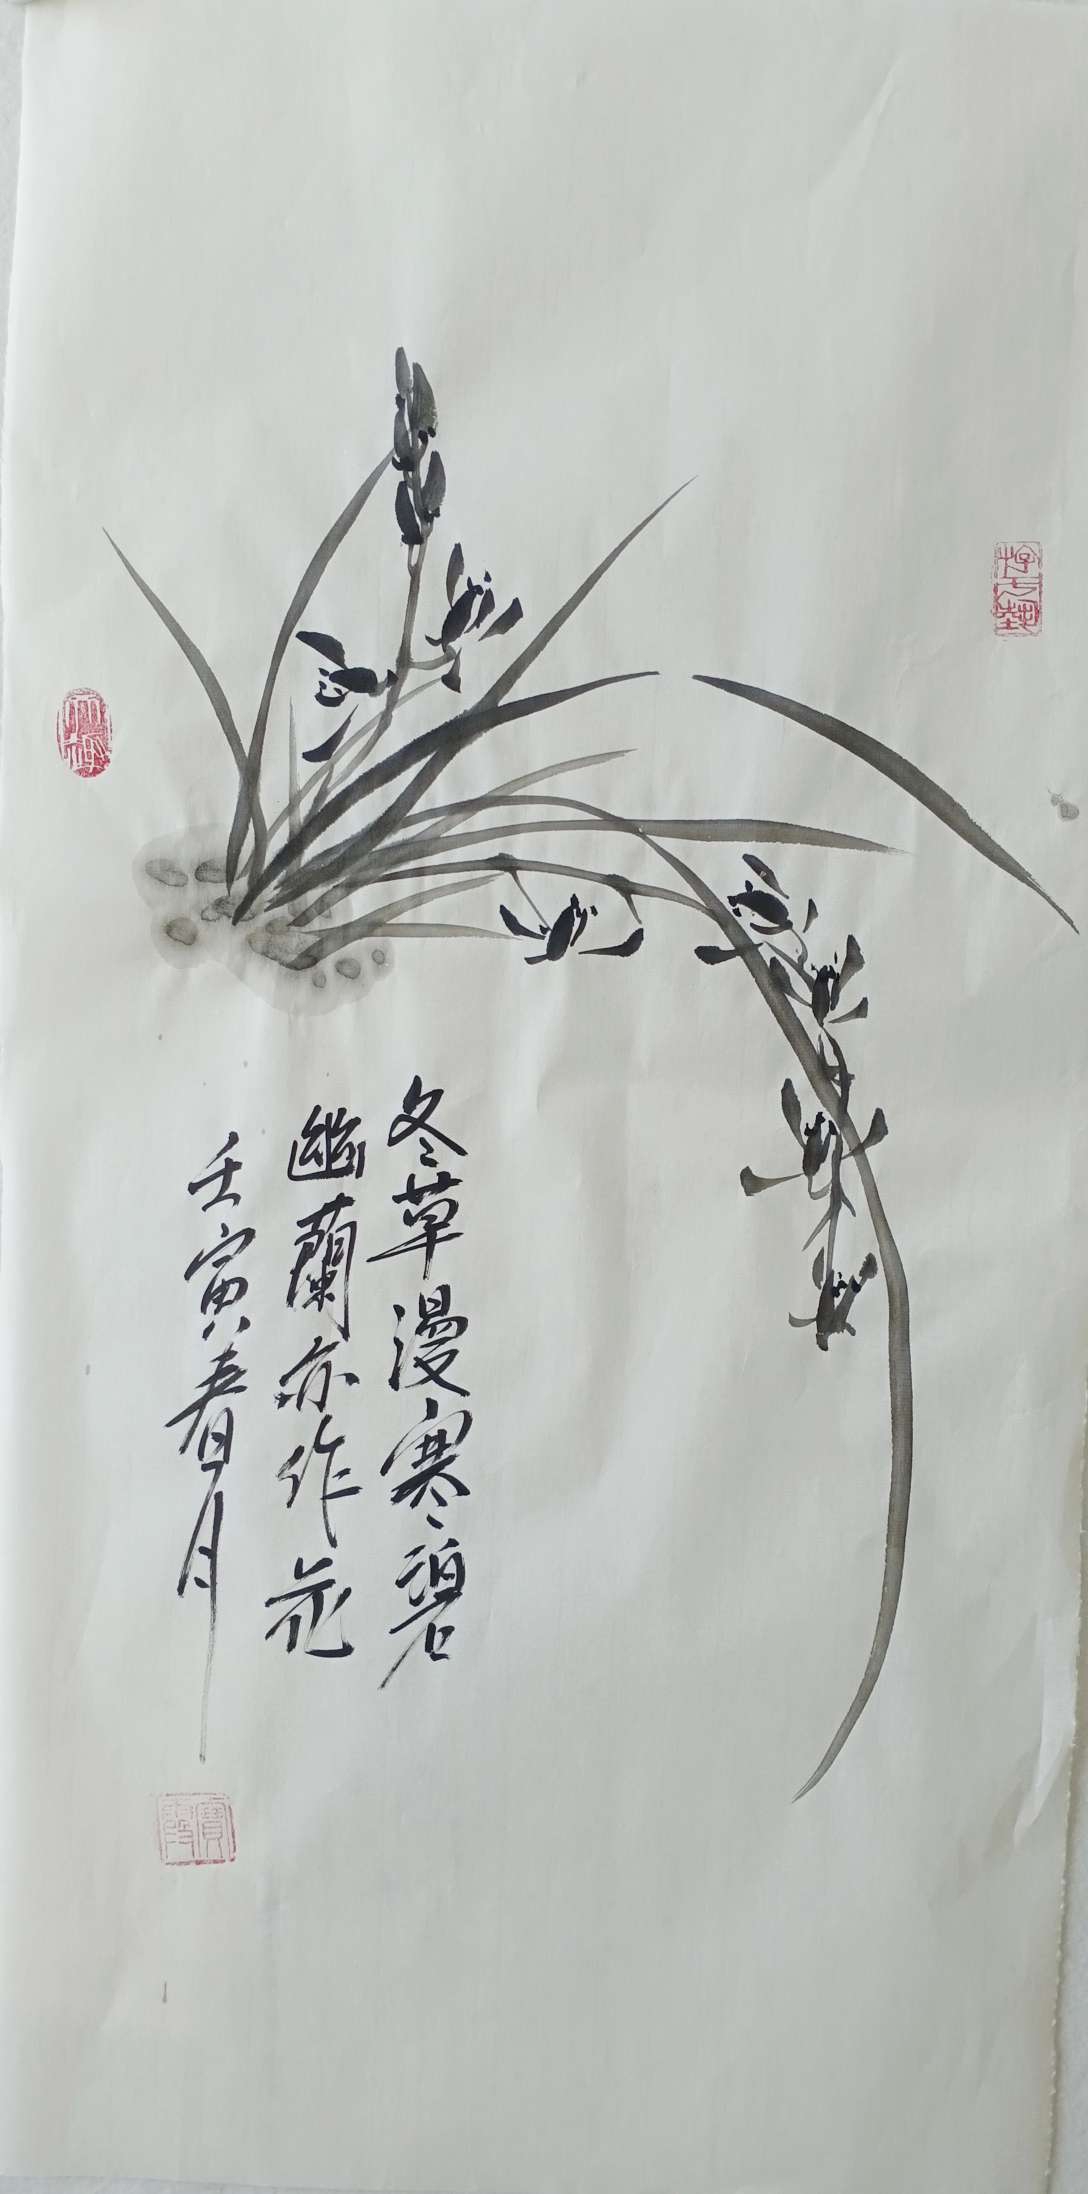 冬草漫寒碧
幽蘭亦作花
壬寅春月
寶霞